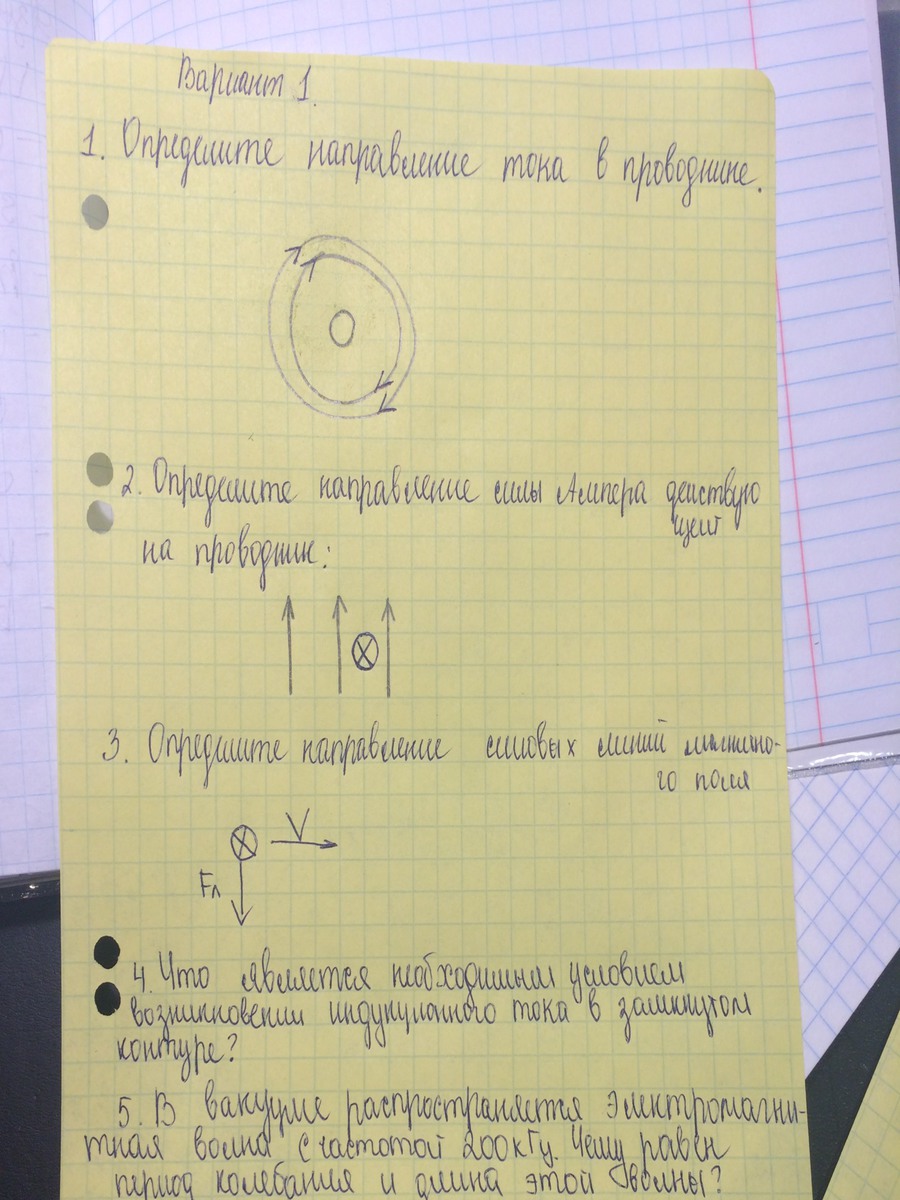 Вариант 1.
1. Определите направление тока в проводнике.
2. Определите направление силы Ампера действую
щей
на проводник:
3. Определите направление силовых линий магнитно-
го поля
V
Fл
4. Что является необходимым условием
возникновении индукционного тока в замкнутом
контуре?
5. В вакууме распространяется электромагни-
тная волна с частотой 200кГц. Чему равен
период колебания и длина этой волны?